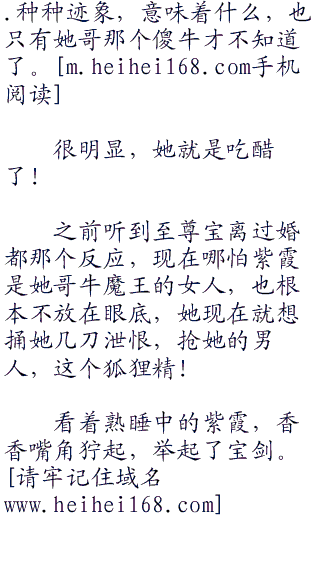 .种种迹象，意味着什么，也
只有她哥那个傻牛才不知道
了。[m.heihei168.com手机
阅读]
很明显，她就是吃醋
了！
之前听到至尊宝离过婚
都那个反应，现在哪怕紫霞
是她哥牛魔王的女人，也根
本不放在眼底，她现在就想
捅她几刀泄恨，抢她的男
人，这个狐狸精！
看着熟睡中的紫霞，香
香嘴角狞起，举起了宝剑。
[请牢记住域名
www.heihei168.com]